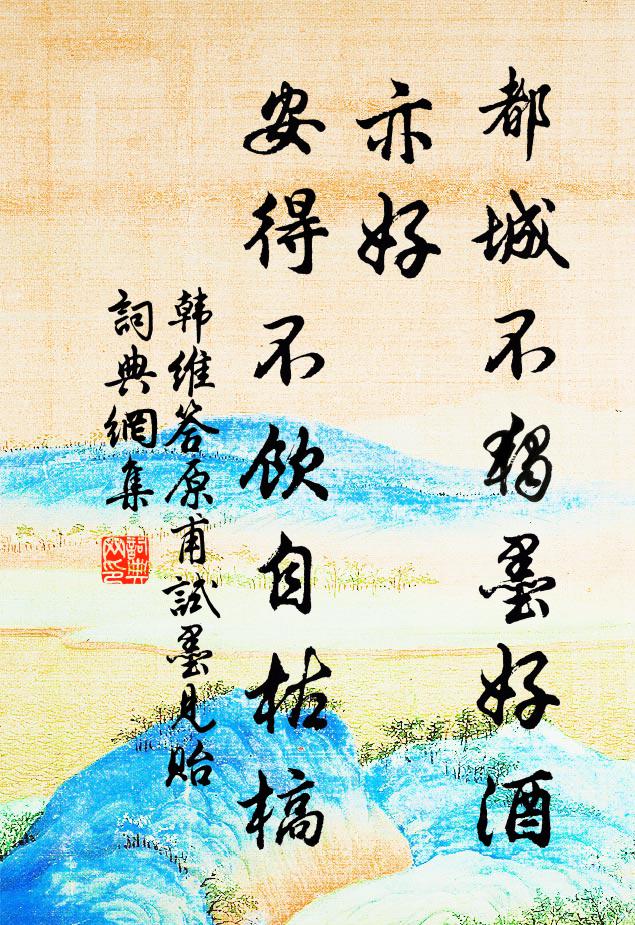 都城不独墨好酒
亦好
安得不饮自枯槁
韩维答原甫試墨見贻
詞典網集
詞典網印